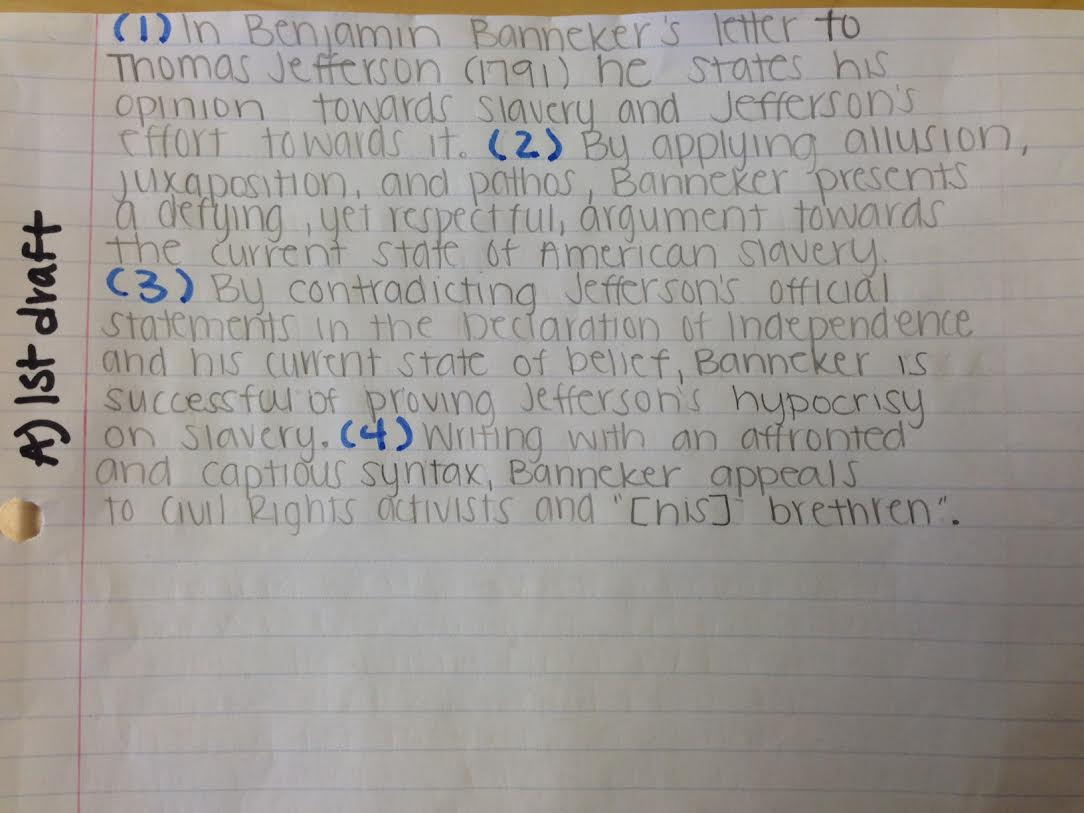 (1) In Benjamin Banneker's letter to
Thomas Jefferson (1791) he states his
opinion towards slavery and Jefferson's
effort towards it. (2) By applying allusion,
juxaposition, and pathos, Banneker presents
a defying, yet respectful, argument towards
the current state of American slavery.
(3) By contradicting Jefferson's official
statements in the Declaration of Independence
and his current state of belief, Banneker is
successful of proving Jefferson's hypocrisy
on slavery. (4) Writing with an affronted
and captious syntax, Banneker appeals
to Civil Rights activists and "[his] brethren".
A) 1st draft